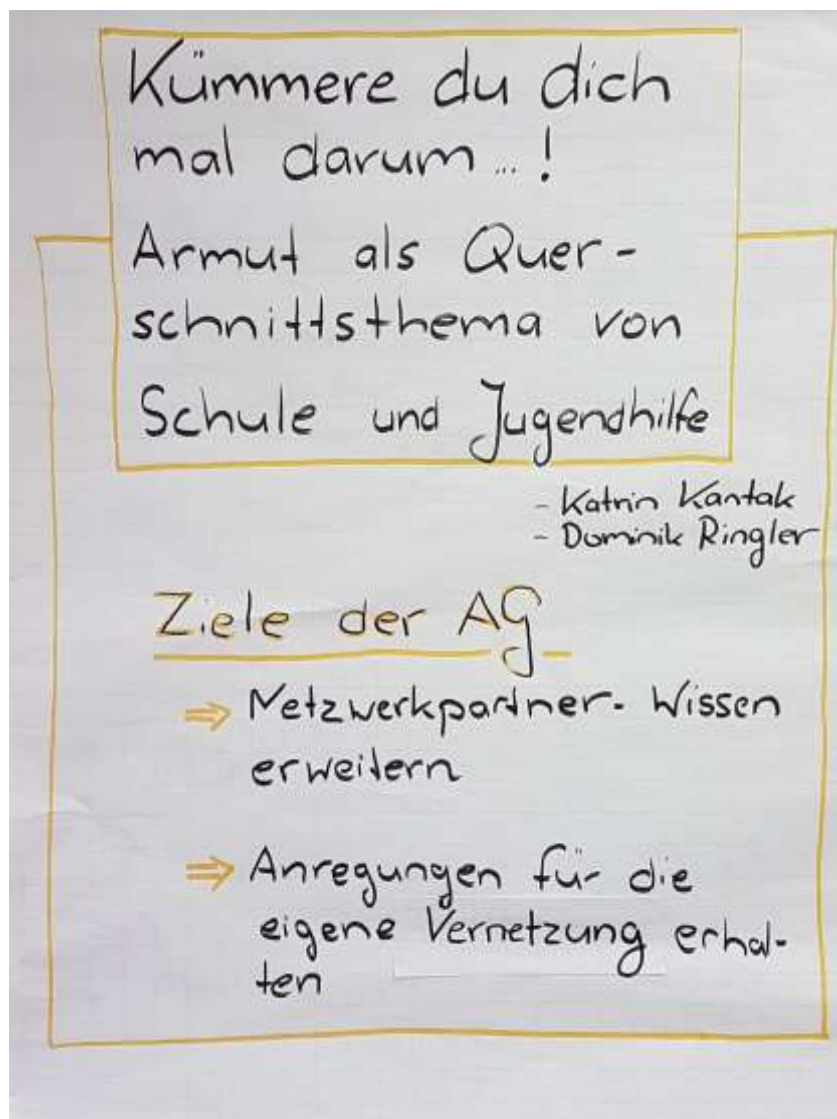 Kümmere du dich
mal darum...!
Armut als Quer-
schnittsthema von
Schule und Jugendhilfe
- Katrin Kantak
- Dominik Ringler
Ziele der AG
⇒ Netzwerkpartner-Wissen
erweitern
⇒ Anregungen für die
eigene Vernetzung erhal-
ten